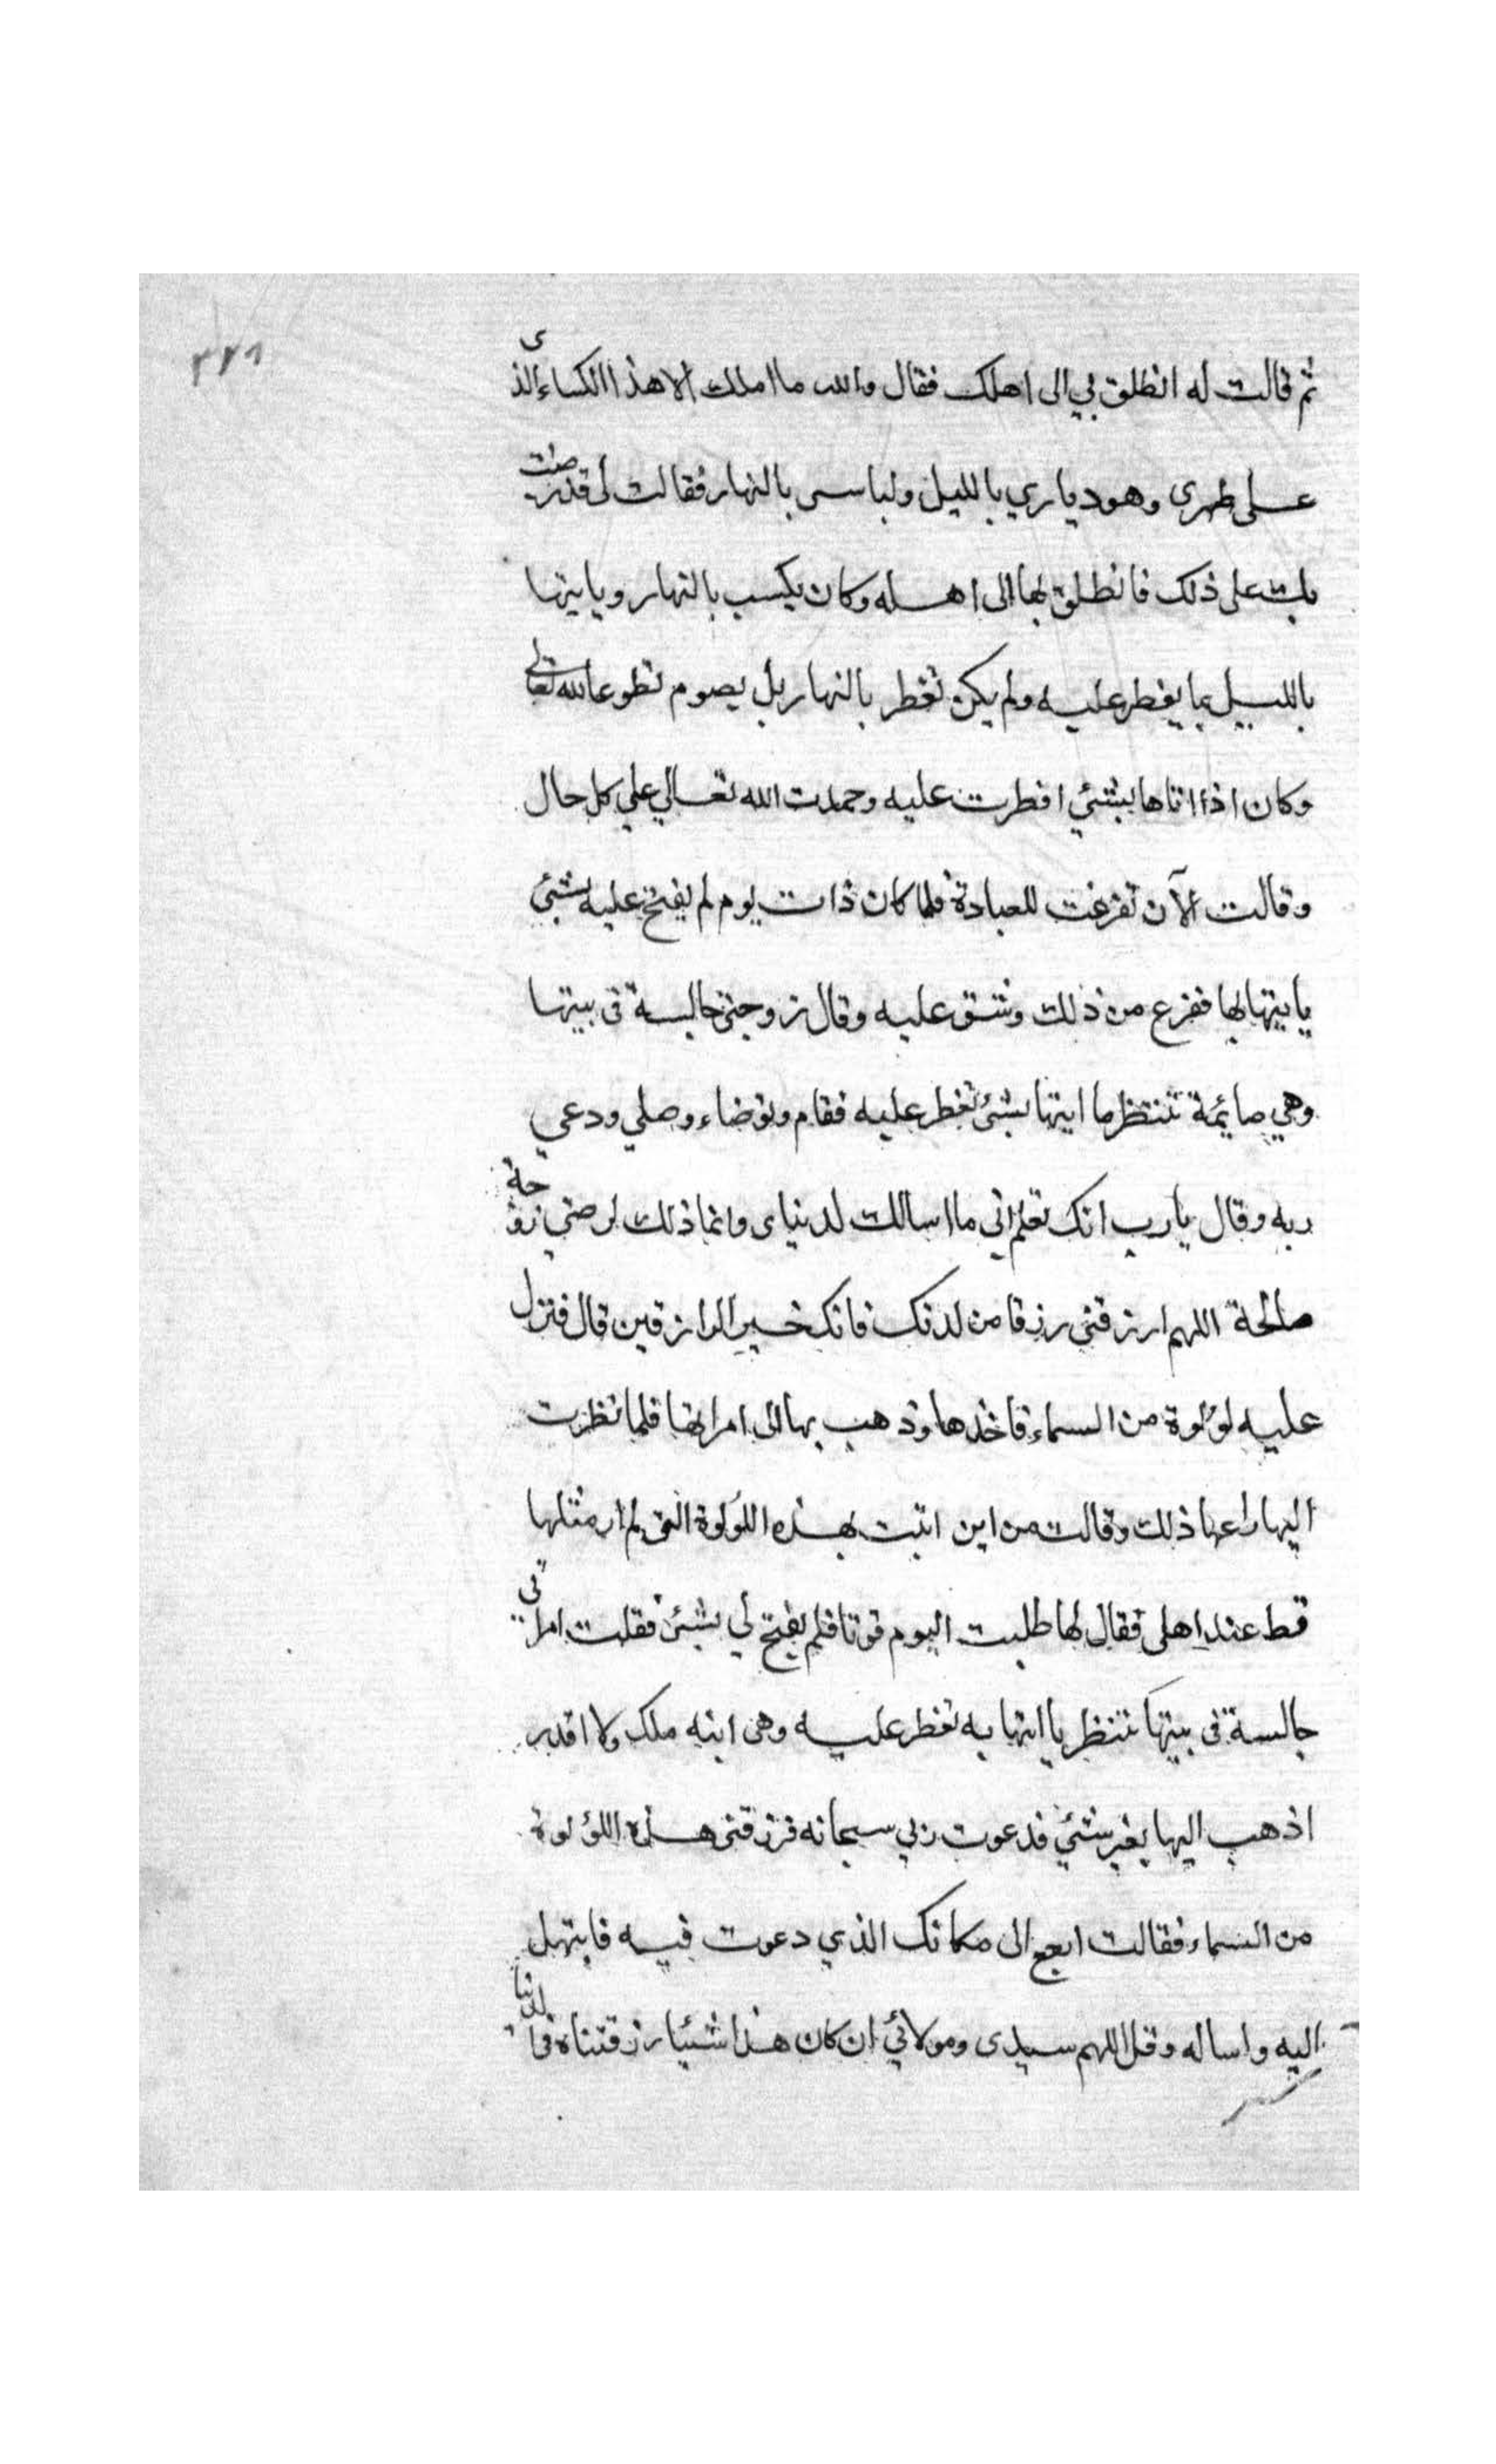 ٢٢٦
ثم قالت له انطلق بي الى اهلك فقال والله ما املك الا هذا الكساء الذى
على ظهرى وهو دياري بالليل ولباسى بالنهار فقالت لى قد رضت
بك على ذلك فانطلق بها الى اهله وكان يكسب بالنهار وياتيها
بالليل بما يفطر عليه ولم يكن تفطر بالنهار بل يصوم تطوعا لله تعالى
وكان اذا اتاها بشئي افطرت عليه وحمدت الله تعالي علي كل حال
وقالت الآن تفرغت للعبادة فلما كان ذات يوم لم يفتح عليه بشئ
ياتيها بها ففزع من ذلك وشق عليه وقال زوجتى جالسة في بيتها
وهي صائمة تنتظر ما اتيها بشئ تفطر عليه فقام وتوضاء وصلي ودعي
ربه وقال يارب انك تعلم اني ما اسالك لدنياى وانما ذلك لرضي زوجة
صالحة اللهم ارزقني رزقا من لدنك فانك خير الرازقين قال فنزل
عليه لؤلوة من السماء فاخذها وذهب بها الى امراته فلما نظرت
اليها راعها ذلك وقالت من اين اتيت بهذه اللؤلوة التى لم ار مثلها
قط عند اهلى فقال لها طلبت اليوم قوتا فلم يفتح لي بشئ فقلت امراتي
جالسة في بيتها تنتظر يا اتيها به تفطر عليه وهى ابنه ملك ولا اقدر
اذهب اليها بغير شئي فدعوت ربي سبحانه فرزقنى هذه اللؤلوة
من السماء فقالت ارجع الى مكانك الذي دعوت فيه فابتهل
اليه واساله وقل اللهم سيدى ومولائي ان كان هذا شيئا رزقتناه في الدنيا